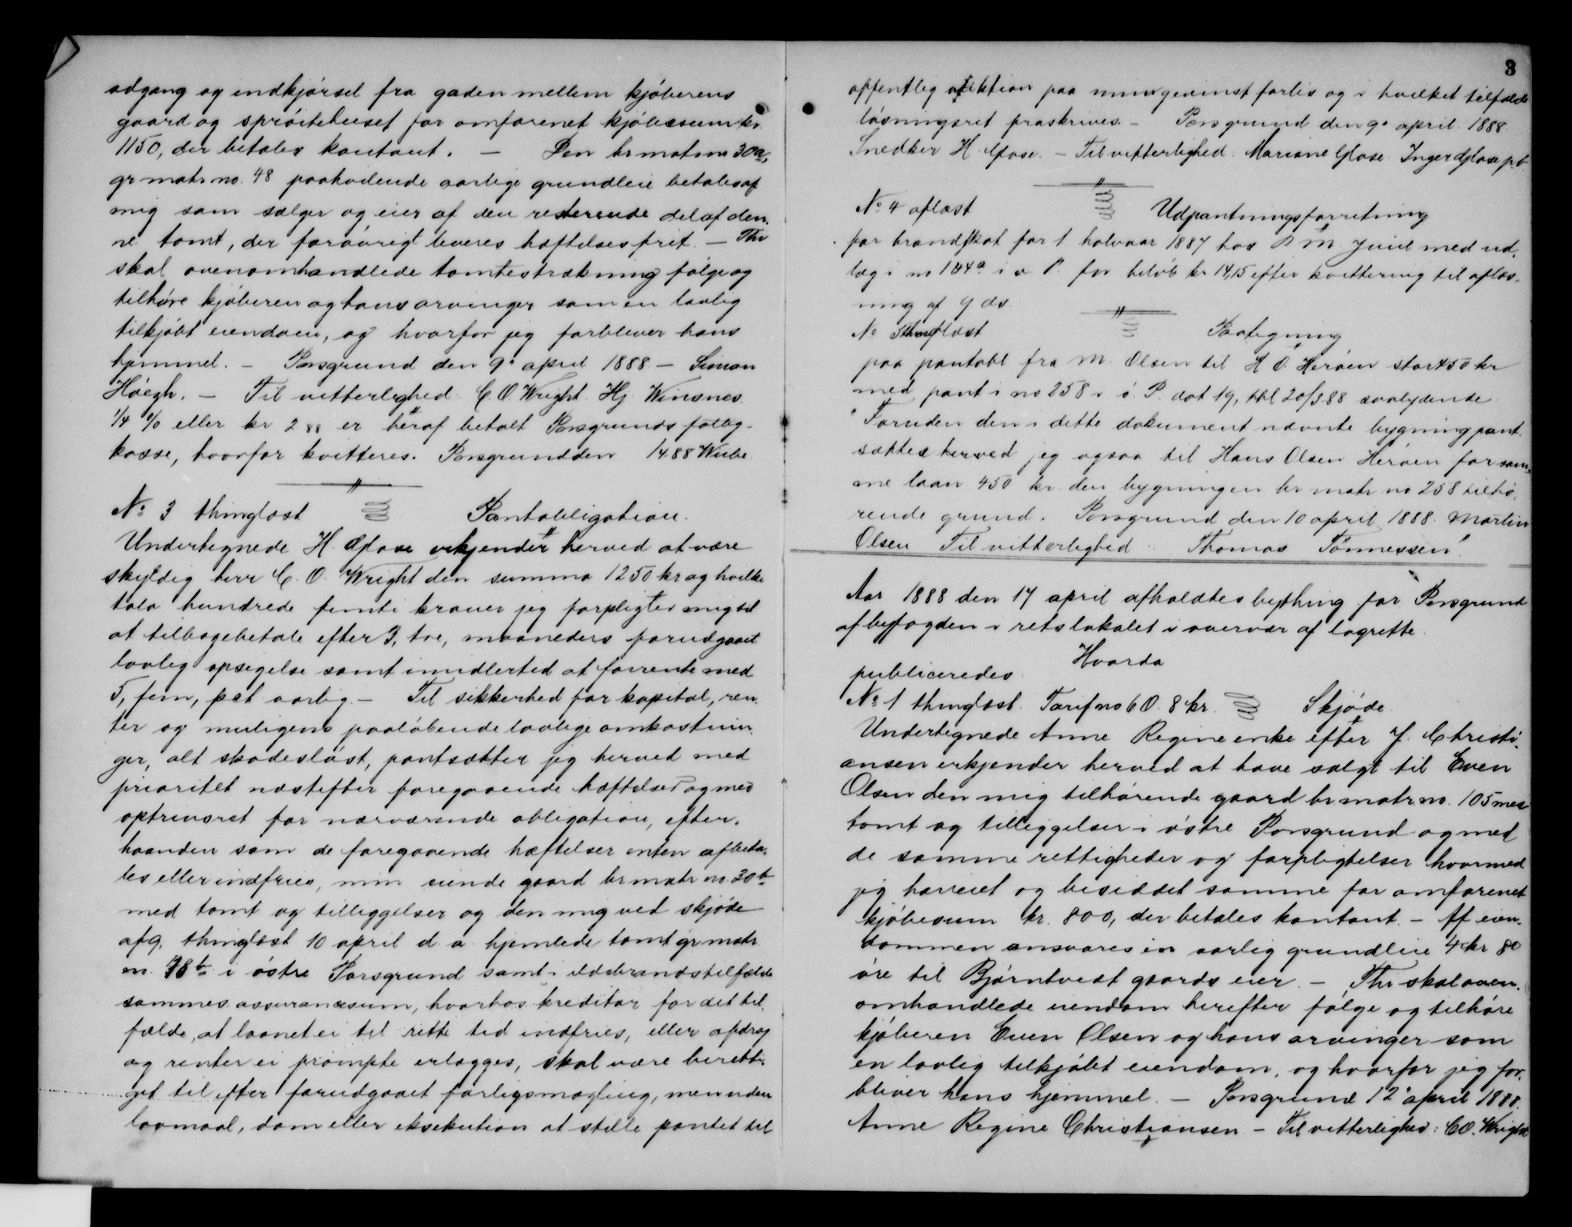 adgang og indkjørsel fra gaden mellem kjøberens
gaard og sprøitehuset for omforenet kjøbesum kr.
1150, der betales kontant. — Den br matr no 30a,
gr matr no. 48 paahvilende aarlige grundleie betales af
mig som sælger og eier af den resterende del af den-
ne tomt, der forøvrigt leveres hæftelsesfrit. — Thi
skal ovenomhandlede tomtestrækning følge og
tilhøre kjøberen og hans arvinger som en lovlig
tilkjøbt eiendom, og hvorfor jeg forbliver hans
hjemmel. — Porsgrund den 9de april 1888 — Simon
Høegh. — Til vitterlighed C. O. Wright Hj. Winsnes
1/4 % eller kr 2 88 er heraf betalt Porsgrunds fattig-
kasse, hvorfor kvitteres. Porsgrund den 14 88
No 3 thinglæst Pantobligation.
Undertegnede H. erkjender herved at være
skyldig herr C. O. Wright den summa 1250 kr og hvilke
tolv hundrede femti kroner jeg forpligter mig til
at tilbagebetale efter 3, tre, maaneders forudgaaet
lovlig opsigelse samt imidlertid at forrente med
5, fem, pct aarlig. — Til sikkerhed for kapital, ren-
ter og muligens paaløbende lovlige omkostnin-
ger, alt skadesløst, pantsætter jeg herved med
prioritet næstefter foregaaende hæftelser og med
optrinsret for nærværende obligation, efter-
haanden som de foregaaende hæftelser enten afbeta-
les eller indfries, min eiende gaard br matr no 30b
med tomt og tilliggelser og den mig ved skjøde
af 9, thinglæst 10 april d a hjemlede tomt gr matr
no 48b i østre Porsgrund samt i ildebrandstilfælde
sammes assurancesum, hvorhos kreditor for det til-
fælde, at laanet ei til rette tid indfries, eller afdrag
og renter ei prompte erlægges, skal være beretti-
get til efter forudgaaet forligsmægling, men uden
lovmaal, dom eller eksekution at stille pantet til
3
offentlig auktion paa min gevinst forlis og i hvilket tilfælde
løsningsret fraskrives. — Porsgrund den 9de april 1888
Snedker H. — Til vitterlighed: Mariane Inger
No 4 aflæst Udpantningsforretning
for brandskat for 1 halvaar 1887 hos P M med ud-
læg i no 144a i v. P. for beløb kr 14,15 efter kvittering til aflæs-
ning af 9 ds
No 5 thinglæst Paategning
paa pantobl fra M. Olsen til H O Herøen stor 450 kr
med pant i no 258 i ø. P. dat 19, thl 20/3 88 saalydende
"Foruden den i dette dokument nævnte bygning pant-
sættes herved jeg ogsaa til Hans Olsen Herøen for sam-
me laan 450 kr den bygningen br matr no 258 tilhø-
rende grund. Porsgrund den 10 april 1888. Martin
Olsen Til vitterlighed: Thomas Tønnessen".
Aar 1888 den 17 april afholdtes bything for Porsgrund
af byfogden i retslokalet i overvær af lagrette.
Hvorda
publiceredes
No 1 thinglæst. Tarif no 60. 8 kr. Skjøde
Undertegnede Anne Regine enke efter J. Christi-
ansen erkjender herved at have solgt til Even
Olsen den mig tilhørende gaard br matr no. 105 med
tomt og tilliggelser i østre Porsgrund og med
de samme rettigheder og forpligtelser hvormed
jeg har eiet og besiddet samme for omforenet
kjøbesum kr. 800, der betales kontant — Af eien-
dommen ansvares en aarlig grundleie 4 kr 80
øre til Bjørntvedt gaards eier. — Thi skal oven-
omhandlede eiendom herefter følge og tilhøre
kjøberen Even Olsen og hans arvinger som
en lovlig tilkjøbt eiendom, og hvorfor jeg for-
bliver hans hjemmel. — Porsgrund 12te april 1888.
Anne Regine Christiansen — Til vitterlighed: C. O. Wright